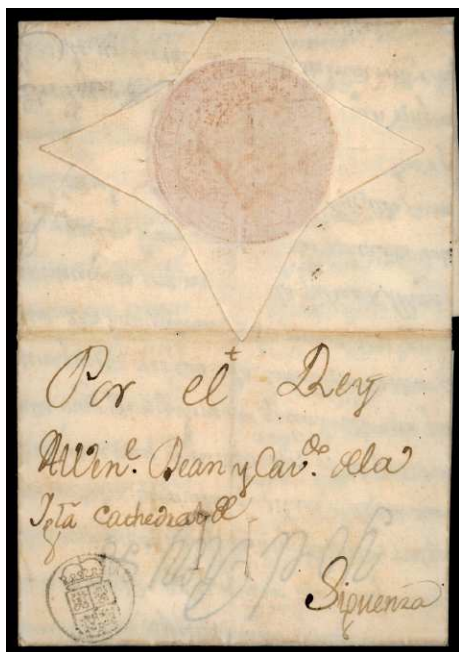 Por el Rey
Al Vēn.e Dean y Cav.do dela
Igla Cathedral de
Siguenza